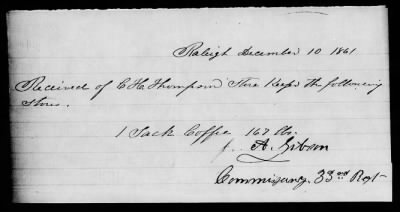 Raleigh December 10 1861
Received of C H Thompson Store Keepr the following
Stores.
1 Sack Coffee 162 lbs.
A. Gibson
Commissary 33rd Regt